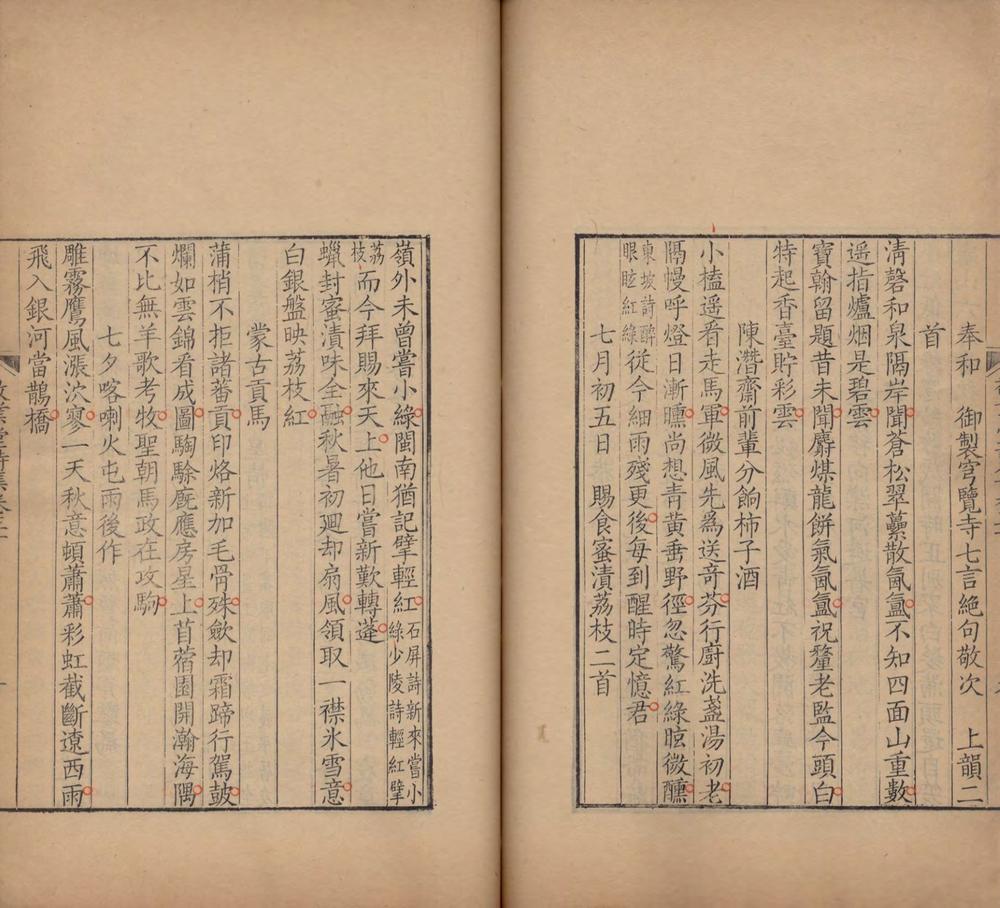 奉和　御製穹覽寺七言絶句敬次　上韻二
首
清磬和泉隔岸聞蒼松翠蘽散氤氳不知四面山重數
遥指爐烟是碧雲
寶翰留題昔未聞麝煤龍餅氣氤氳祝釐老監今頭白
特起香臺貯彩雲
陳潛齋前輩分餉柿子酒
小榼遥看走馬軍微風先爲送竒芬行廚洗盞湯初老
隔幔呼燈日漸曛尚想青黄垂野徑忽驚紅緑眩微醺
東坡詩醉眼眩紅緑從今細雨殘更後每到醒時定憶君
七月初五日　賜食蜜漬荔枝二首
嶺外未曾嘗小緑閩南猶記擘輕紅石屏詩新來嘗小緑少陵詩輕紅擘
荔枝而今拜賜來天上他日嘗新歎轉蓬
蠟封蜜漬味全融秋暑初廽却扇風領取一襟氷雪意
白銀盤映荔枝紅
蒙古貢馬
蒲梢不拒諸蕃貢印烙新加毛骨殊歛却霜蹄行駕鼓
爛如雲錦看成圖騊駼廐應房星上苜蓿園開瀚海隅
不比無羊歌考牧聖朝馬政在攻駒
七夕喀喇火屯雨後作
雕霧鷹風漲泬寥一天秋意頓蕭蕭彩虹截斷遼西雨
飛入銀河當鵲橋